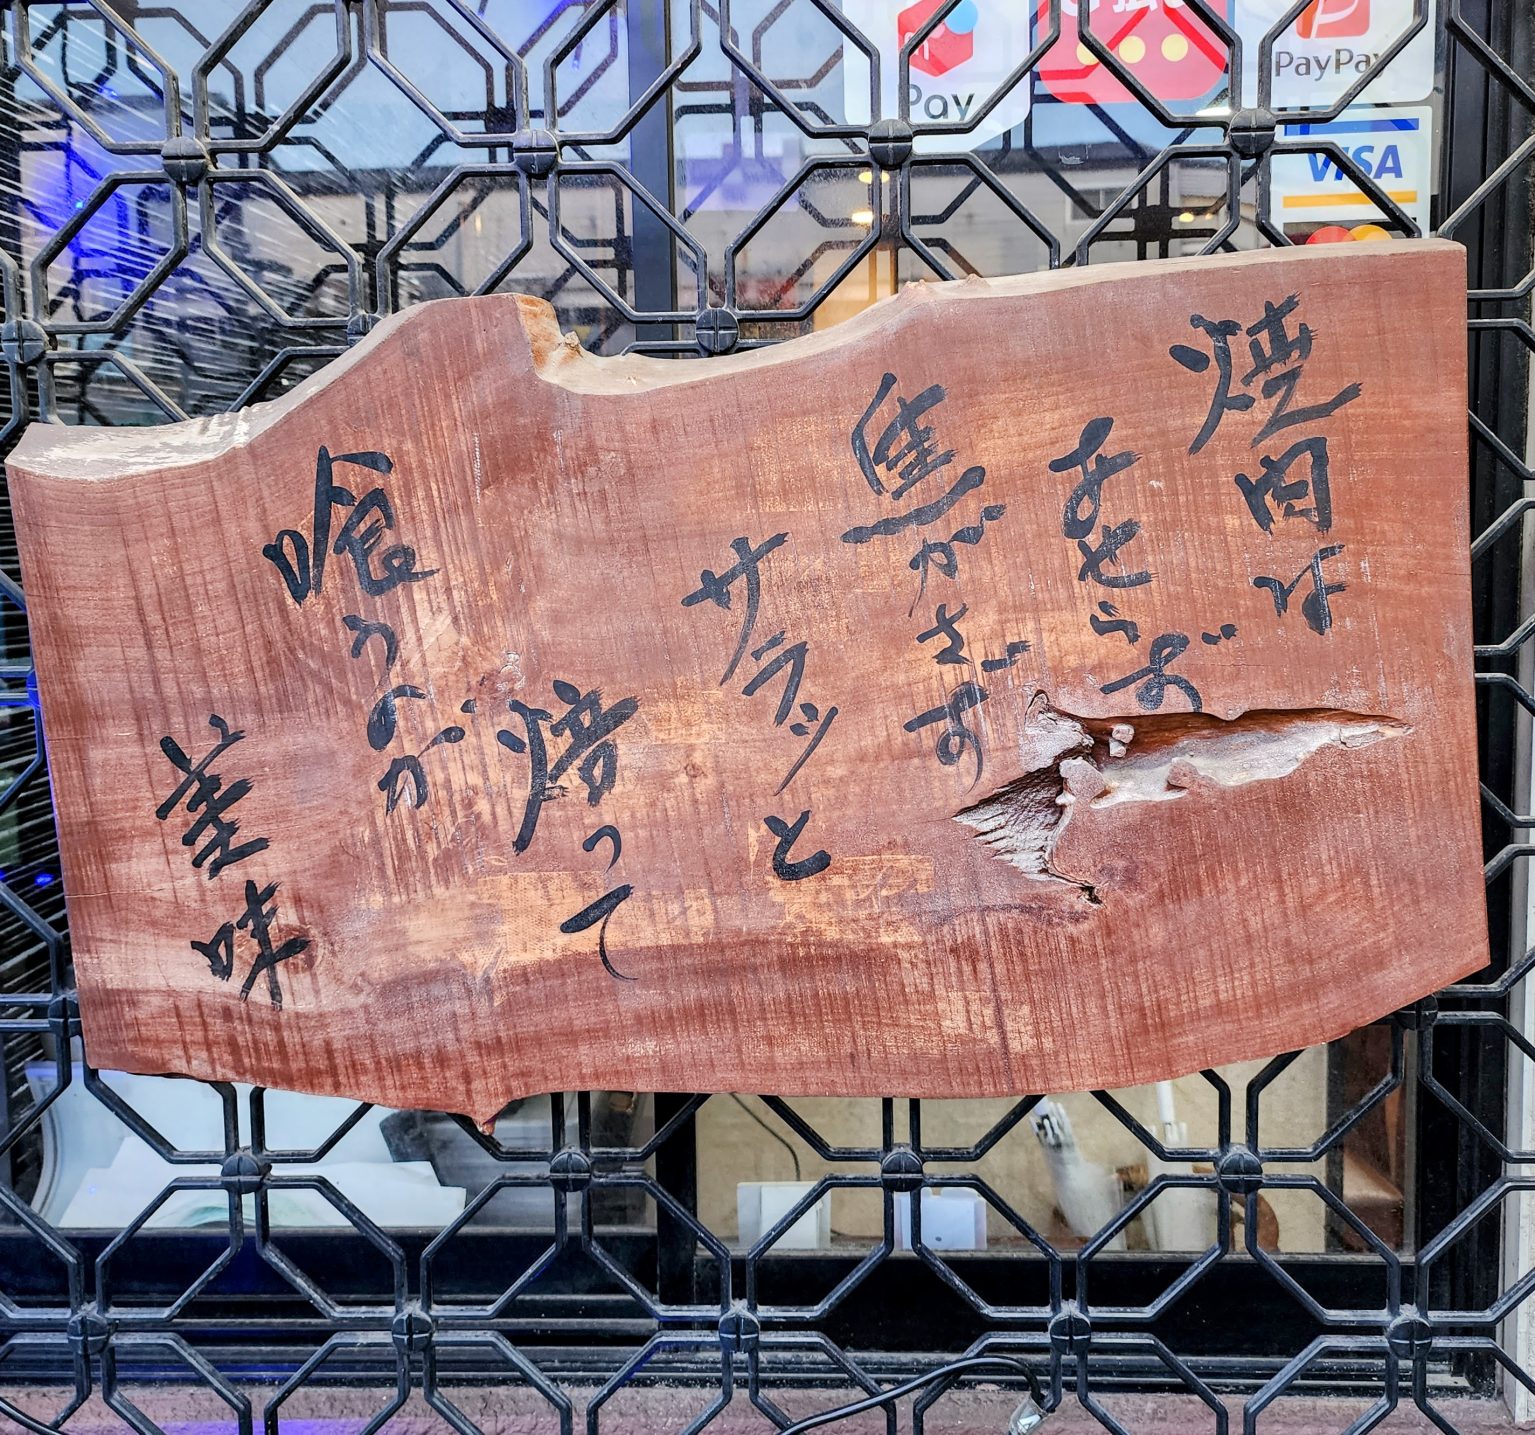 Pay
PayPay
VISA
焼肉は
あせらず
焦がさず
サラッと
焙って
喰うのが
美味